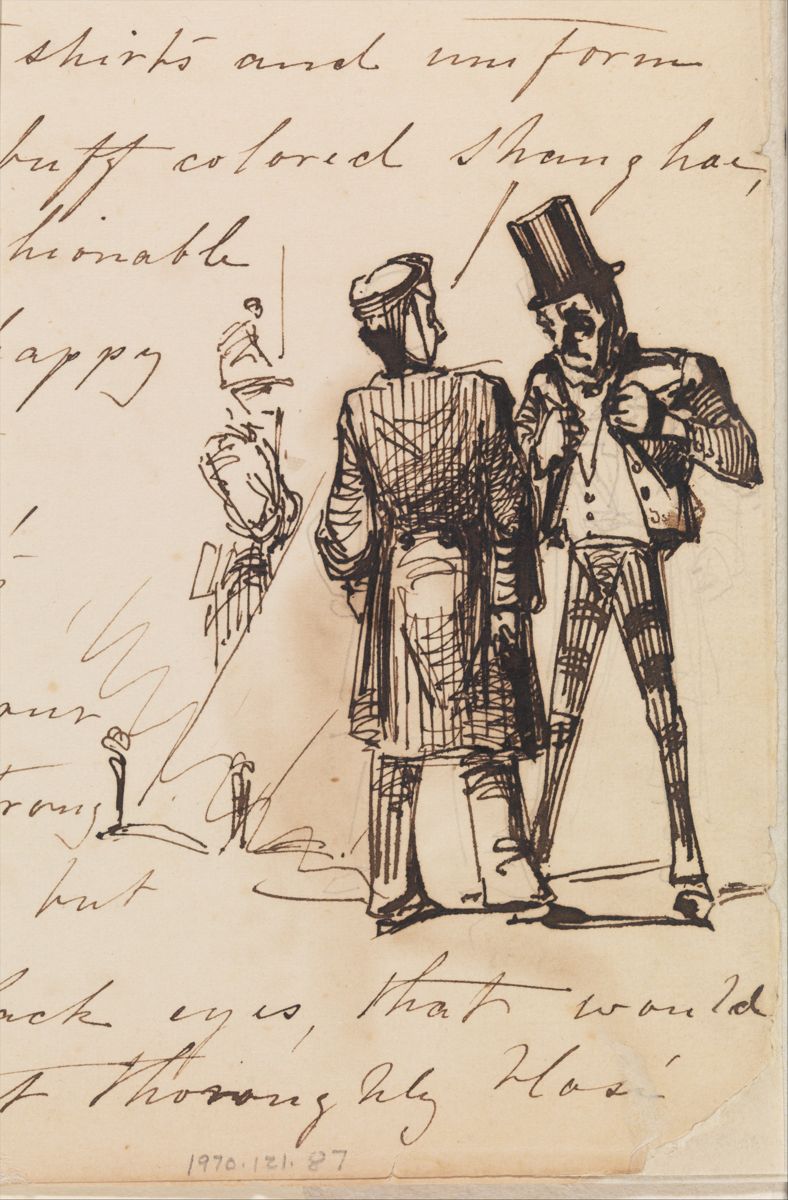 shirts and uniform
buff colored Shanghae,
hionable
happy
our
trong
but
lack eyes, that would
t thoroughly blasé
1970.121.87